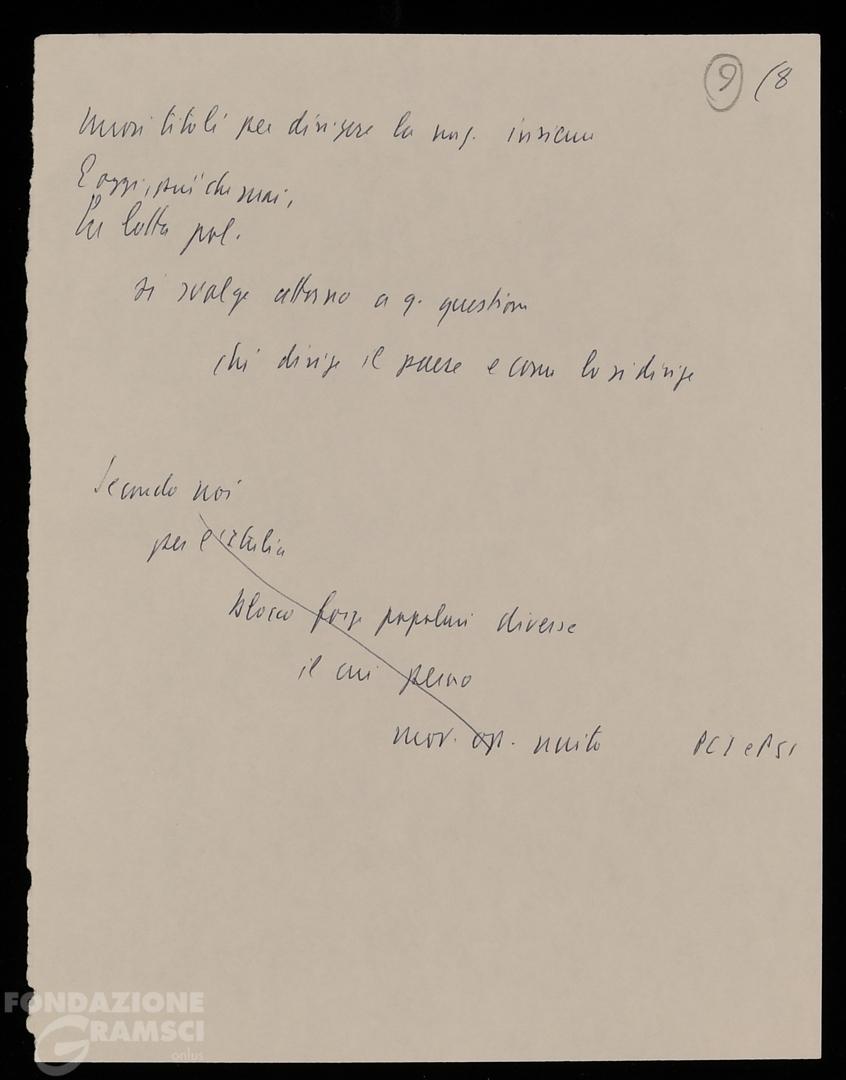 9 (8
nuovi titoli per dirigere la naz. insieme
E oggi, più che mai,
la lotta pol.
si svolge attorno a q. questione
chi dirige il paese e come lo si dirige
Secondo noi
per l'Italia
blocco forze popolari diverse
il cui perno
mov. op. unito PCI e PSI
FONDAZIONE
GRAMSCI
onlus